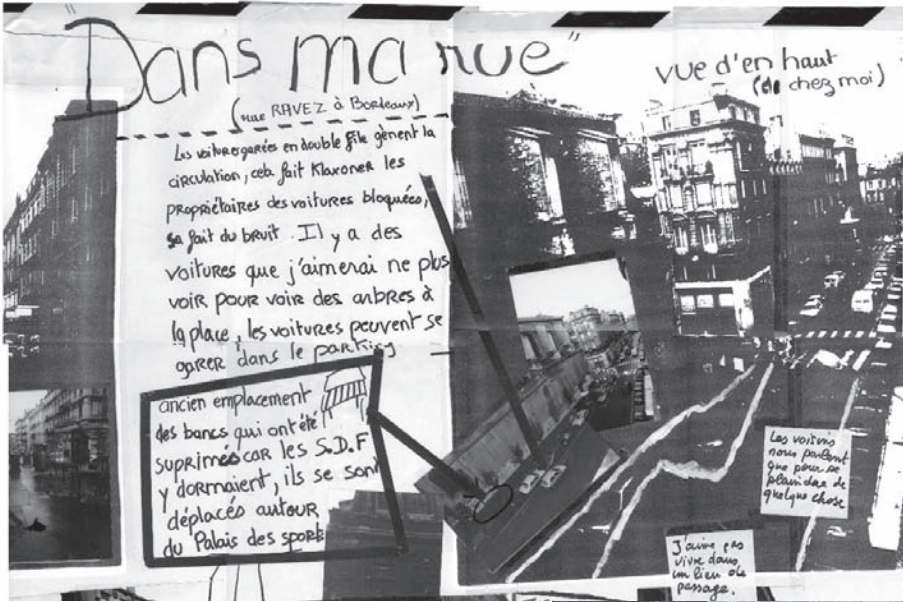 "Dans ma rue"
(rue RAVEZ à Bordeaux)
Les voitures garées en double file gênent la
circulation, cela fait Klaxoner les
propriétaires des voitures bloquées,
sa fait du bruit. Il y a des
voitures que j'aimerai ne plus
voir pour voir des arbres à
la place, les voitures peuvent se
garer dans le parking
ancien emplacement
des bancs qui ont été
suprimés car les S.D.F
y dormaient, ils se sont
déplacés autour
du Palais des sports
vue d'en haut
(de chez moi)
Les voisins
nous parlent
que pour se
plaindre de
quelque chose
J'aime pas
vivre dans
un lieu de
passage.